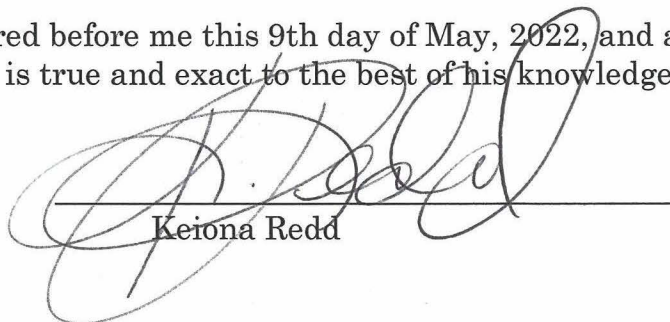 red before me this 9th day of May, 2022, and a
is true and exact to the best of his knowledge
K. Redd
Keiona Redd